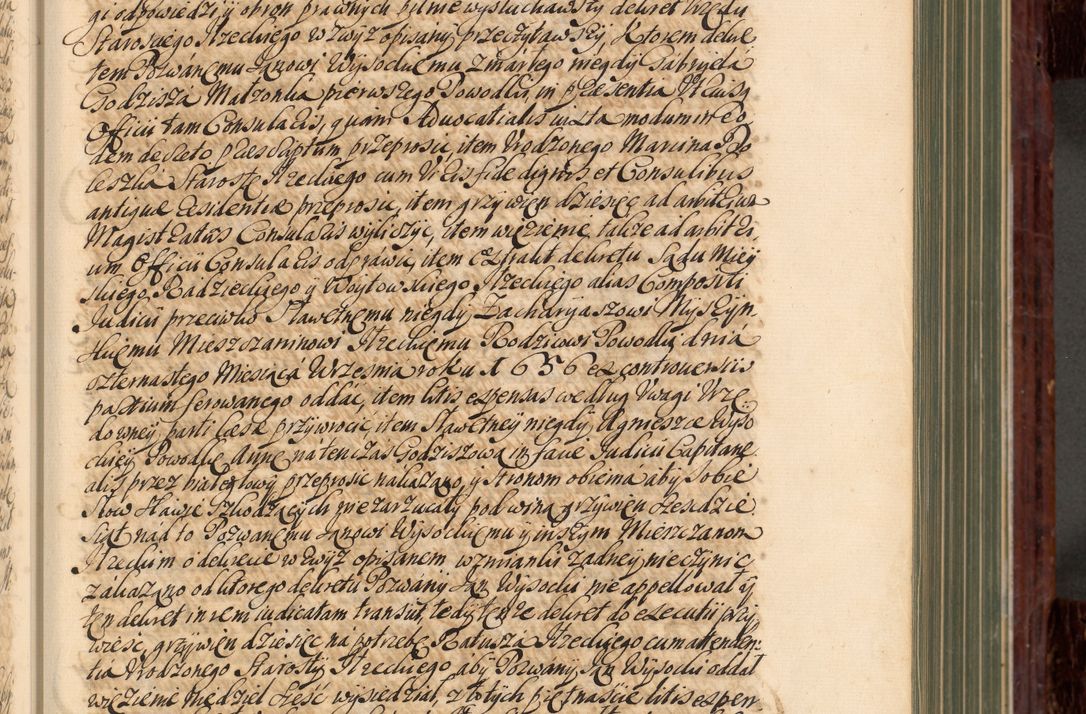 gi odpowiedzi y obron prawnych pilnie wysłuchawszy dekret Urzędu
Staroskiego Rzeckiego wzwyż opisany przeczytawszy, Ktorem dekre
tem Pozwanemu Janowi Wysockiemu zmarłego niegdy Gabryela
Godzisza Małzonka pierwszego Powodki, in praesentia Utriusq
Officii tam Consularis, quam Advocatialis iuxta modum in eo
dem decreto praescriptum przeprosic, item Urodzonego Marcina
leszka Starostę Rzeckiego cum Viris fide dignis et Consulibus
antiquae residentiae przeprosic, item grzywien dziesięc ad arbitrium
Magistratus Consularis wyliczyc, item więzienie także ad arbitri,
um Officii Consularis odprawic, item extrakt dekretu Sądu Miey
skiego, Radzieckiego y Woytowskiego Rzeckiego alias Compositi
Judicii przeciwko Sławetnemu niegdy Zacharyaszowi Młyszyn
skiemu Mieszczaninowi Rzeckiemu Rodzicowi Powodki, dnia
czternastego Miesiąca Września roku 1656 ex controversiis
partium ferowanego oddać, item litis expensas według Uwagi Urzę
downey parti laesae przywrocic, item Sławetney niegdy Agnieszce Wyso
ckiey Powodkę Annę na tenczas Godziszową in facie Judicii Capitane
alis przez białegłowy przeprosic nakazano, y Stronom obiema aby sobie
słow sławie szkodzących nie zarzucały pod winą grzywien sześdzie
siąt nad to Pozwanemu Janowi Wysockiemu y inszym Mieszczanom
Rzeckim o dekrecie wzwyż opisanem wzmianki żadney nie czynic
zakazano od ktorego dekretu Pozwany Jan Wysocki nie appellował y
ten dekret in rem iudicatam transiit, tedy tenże dekret do exekucii przy
wieść, grzywien dziesięc na potrzebę Ratusza Rzeckiego cum attenden-
tia Urodzonego Starosty Rzeckiego, aby Pozwany Jan Wysocki oddał
więzienie niedziel sześć wysiedział, złotych piętnaście litis expen